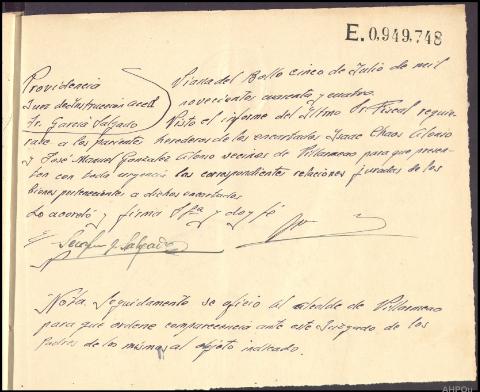 E.0.949.748
Providencia
Juez de Instrucción acctl
Sr. García Salgado
Viana del Bollo cinco de Julio de mil
novecientos cuarenta y cuatro.
Visto el informe del Iltmo Sr. Fiscal requie-
rase a los parientes herederos de los encartados Isaac Chaos Alonso
y José Manuel Gonzalez Alonso vecinos de Villarmeao para que presen-
ten con toda urgencia las correspondientes relaciones juradas de los
bienes pertenecientes a dichos encartados.
Lo acordó y firma Sª y doy fé
Salgado
Nota. Seguidamente se oficio al alcalde de Villarmeao
para que ordene comparecencia ante este Juzgado de los
padres de los mismos al objeto indicado.
AHPOu